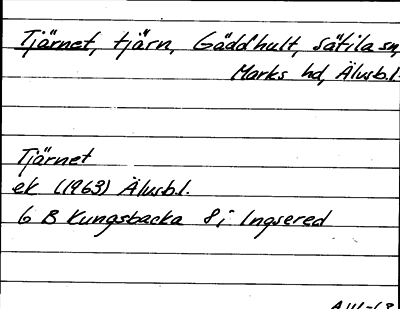 Tjärnet, tjärn, Gäddhult, Sätila sn,
Marks hd, Älvsb.l.
Tjärnet
ek (1963) Älvsb.l.
6 B Kungsbacka 8 i Ingsered